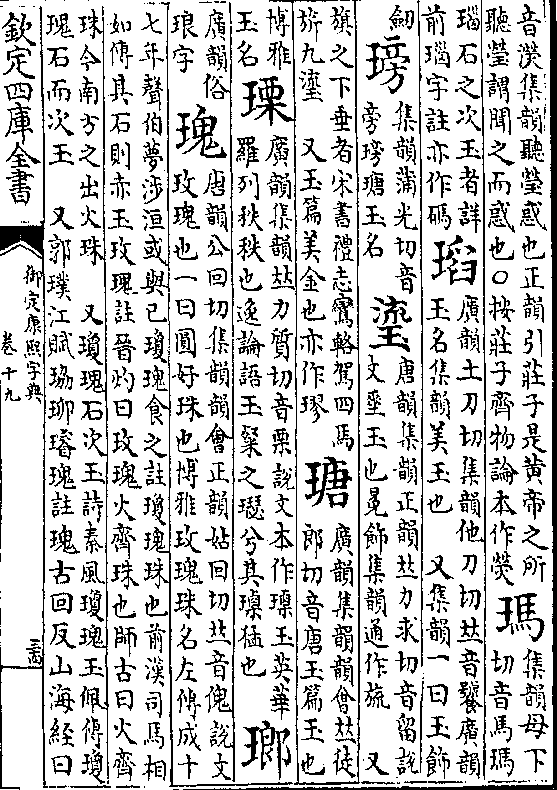 音濙集韻聽瑩惑也正韻引莊子是黃帝之所
聽瑩謂聞之而惑也○按莊子齊物論本作熒瑪集韻母下
切音馬瑪
瑙石之次玉者詳
前瑙字註亦作碼瑫廣韻土刀切集韻他刀切𠀤音饕廣韻
玉名集韻美玉也 又集韻一曰玉飾
劒瑏集韻蒲光切音
旁塝瑭玉名瑬唐韻集韻正韻𠀤力求切音留說
文垂玉也冕飾集韻通作旒 又
旗之下垂者宋書禮志鸞輅駕四馬
旂九瑬 又玉篇美金也亦作璆瑭廣韻集韻韻會𠀤徒
郎切音唐玉篇玉也
博雅
玉名瑮廣韻集韻𠀤力質切音栗說文本作㻎玉英華
羅列秩秩也逸論語玉粲之瑟兮其㻎猛也瑯
廣韻俗
琅字瑰唐韻公回切集韻韻會正韻姑回切𠀤音傀說文
玫瑰也一曰圓好珠也博雅玫瑰珠名左傳成十
七年聲伯夢涉洹或與己瓊瑰食之註瓊瑰珠也前漢司馬相
如傳其石則赤玉玫瑰註晉灼曰玫瑰火齊珠也師古曰火齊
珠今南方之出火珠 又瓊瑰石次玉詩秦風瓊瑰玉佩傳瓊
瑰石而次玉 又郭璞江賦珕珋璿瑰註瑰古回反山海經曰
欽定四庫全書
御定康熙字典
卷十九